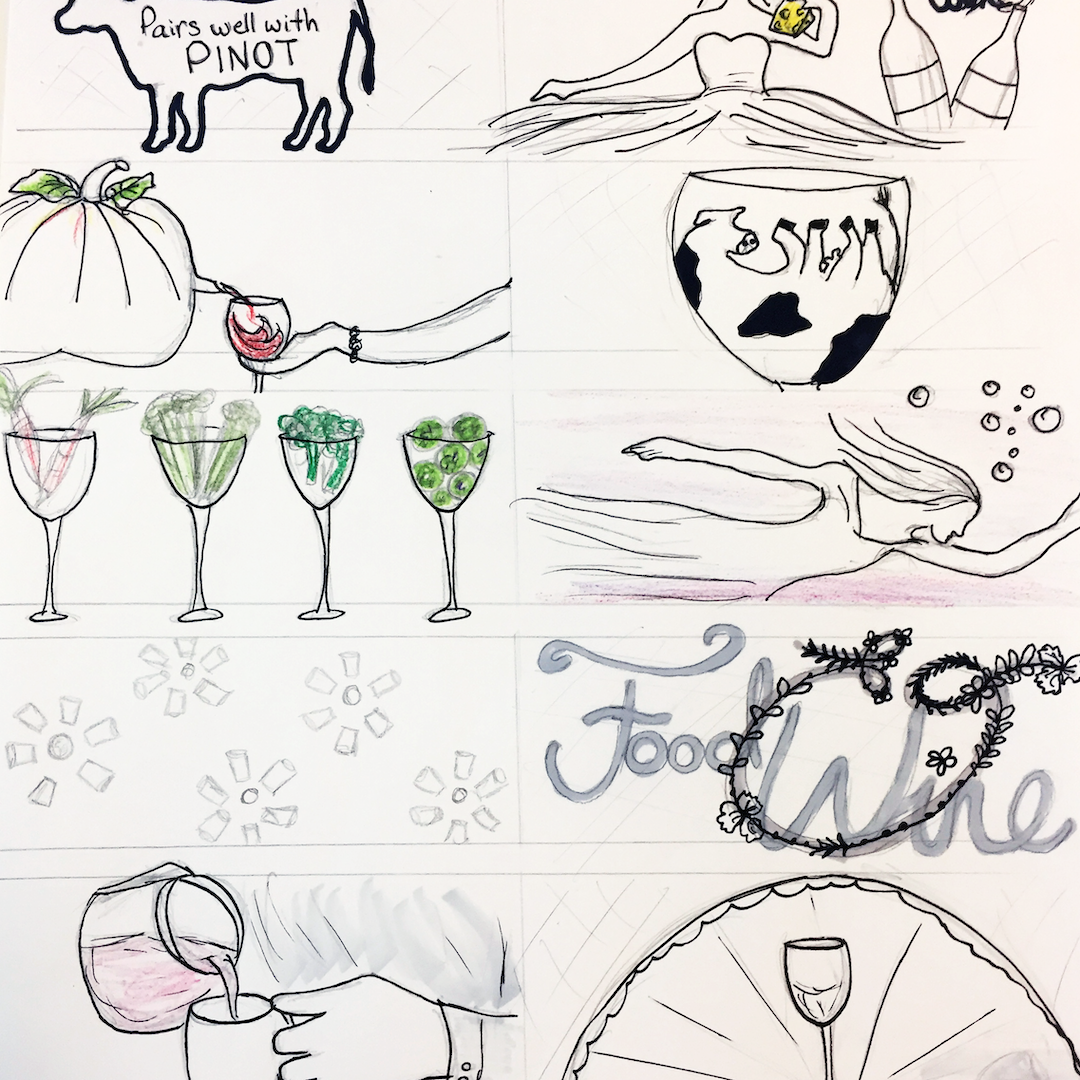 Pairs well with
PINOT
Food
Wine